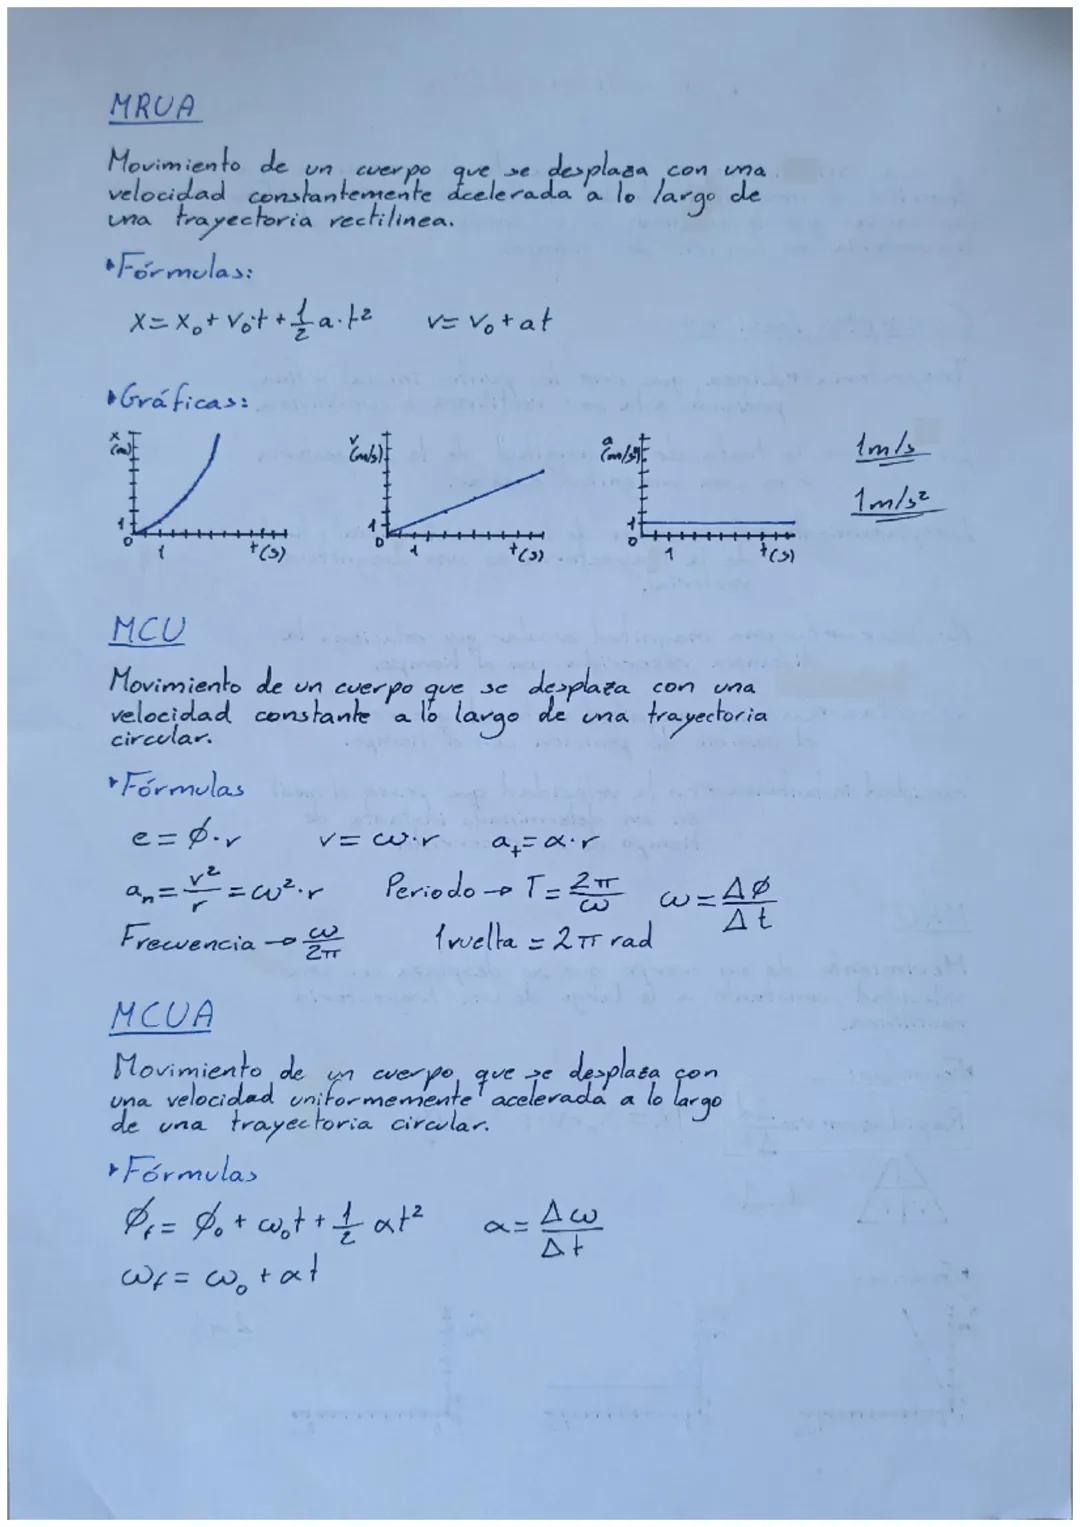 MRUA
Movimiento de un cuerpo que se desplaza con una
velocidad constantemente acelerada a lo largo de
una trayectoria rectilinea.
Fórmulas:
x = x₀ + v₀·t + 1/2 a·t² v = v₀ + at
Gráficas:
x (m) 1 0 1 t(s)
v (m/s) 1 0 1 t(s)
a (m/s²) 1 0 1 t(s)
1m/s
1m/s²
MCU
Movimiento de un cuerpo que se desplaza con una
velocidad constante a lo largo de una trayectoria
circular.
Fórmulas
e = ϕ·r v = ω·r aₜ = α·r
aₙ = v²/r = ω²·r Periodo → T = 2π/ω ω = Δϕ/Δt
Frecuencia → ω/2π 1 vuelta = 2π rad
MCUA
Movimiento de un cuerpo que se desplaza con
una velocidad uniformemente acelerada a lo largo
de una trayectoria circular.
Fórmulas
ϕf = ϕ₀ + ω₀t + 1/2 αt² α = Δω/Δt
ωf = ω₀ + αt